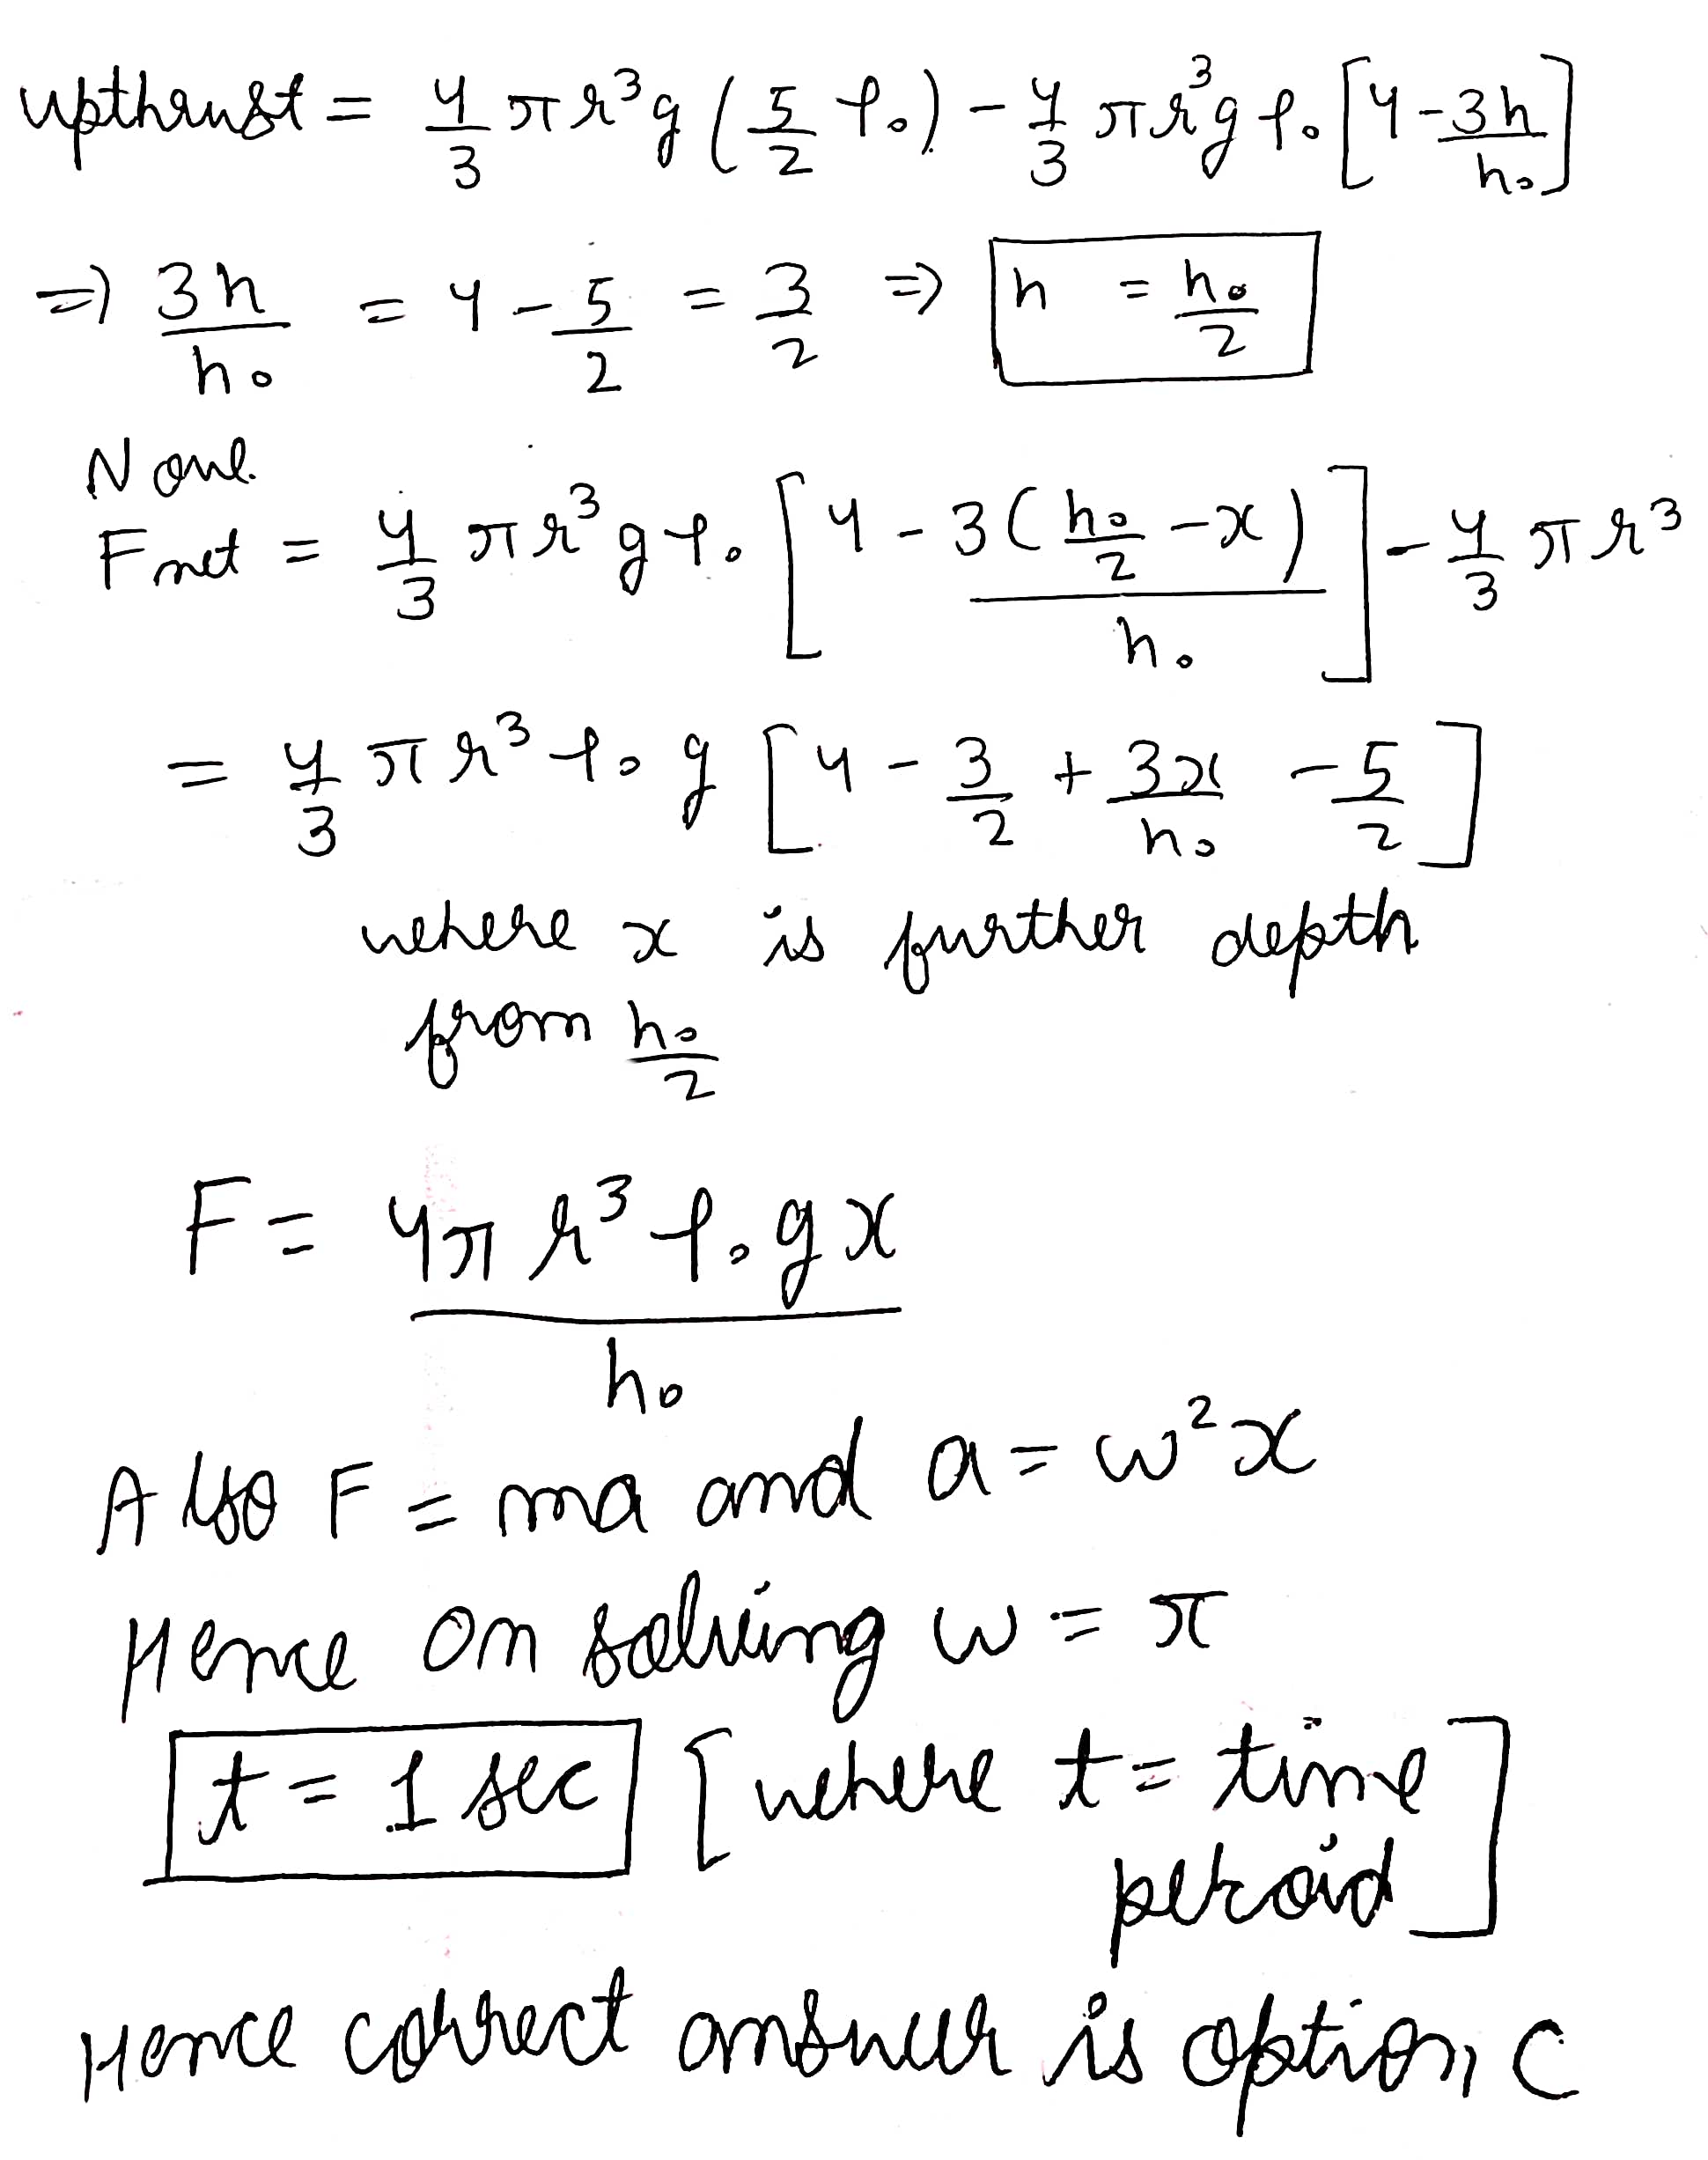 upthrust = 4/3 π r³ g ( 5/2 ρ₀ ) - 4/3 π r³ g ρ₀ [ 4 - 3h/h₀ ]
=> 3h/h₀ = 4 - 5/2 = 3/2 => h = h₀/2
Now
F net = 4/3 π r³ g ρ₀ [ 4 - 3 ( h₀/2 - x ) / h₀ ] - 4/3 π r³
= 4/3 π r³ ρ₀ g [ 4 - 3/2 + 3x/h₀ - 5/2 ]
where x is further depth
from h₀/2
F = 4π r³ ρ₀ g x / h₀
Also F = ma and a = ω²x
Hence on solving ω = π
t = 1 sec [ where t = time
peroid ]
Hence correct answer is option, C